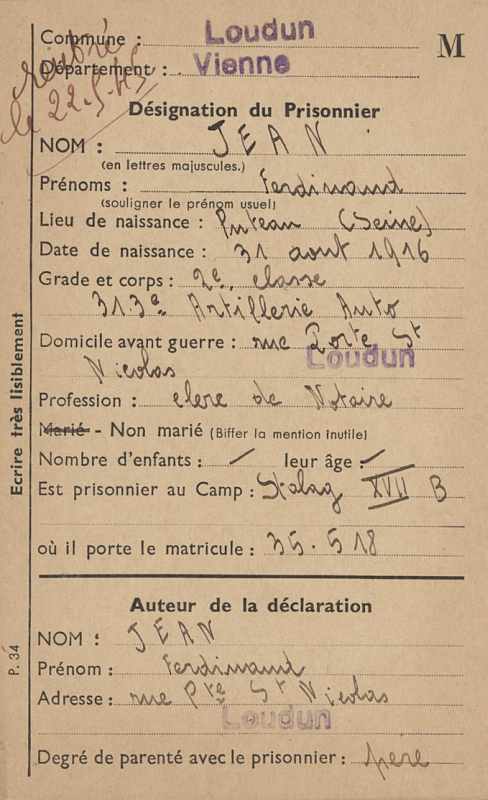 Commune : Loudun
M
Département : Vienne
rentré
le 22-5-45
Désignation du Prisonnier
NOM : JEAN
(en lettres majuscules.)
Prénoms : Ferdinand
(souligner le prénom usuel)
Lieu de naissance : Puteau (Seine)
Date de naissance : 31 aout 1916
Grade et corps : 2e classe
313e Artillerie Auto
Domicile avant guerre : rue Porte St
Nicolas Loudun
Profession : clerc de Notaire
Marié - Non marié (Biffer la mention inutile)
Nombre d'enfants : / leur âge : /
Est prisonnier au Camp : Stalag XVII B
où il porte le matricule : 35.518
Auteur de la déclaration
NOM : JEAN
Prénom : Ferdinand
Adresse : rue Pte St Nicolas
Loudun
Degré de parenté avec le prisonnier : père
Ecrire très lisiblement
P. 34